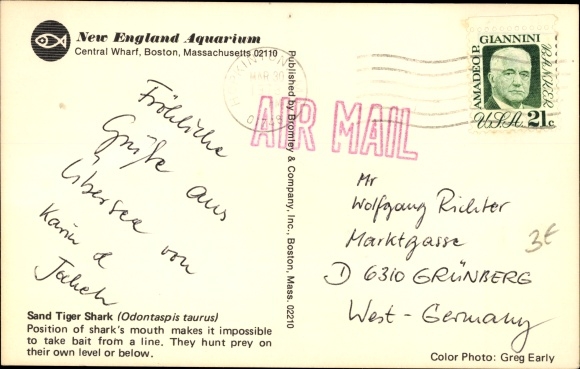 New England Aquarium
Central Wharf, Boston, Massachusetts 02110
Fröhliche
Grüße aus
Übersee von
Karin &
Published by Bromley & Company, Inc., Boston, Mass. 02210
MAR 30
AIR MAIL
AMADEO P. GIANNINI
BANKER
U.S.A. 21c
Mr
Wolfgang Richter
Marktgasse
D 6310 GRÜNBERG
West-Germany
3€
Sand Tiger Shark (Odontaspis taurus)
Position of shark's mouth makes it impossible
to take bait from a line. They hunt prey on
their own level or below.
Color Photo: Greg Early